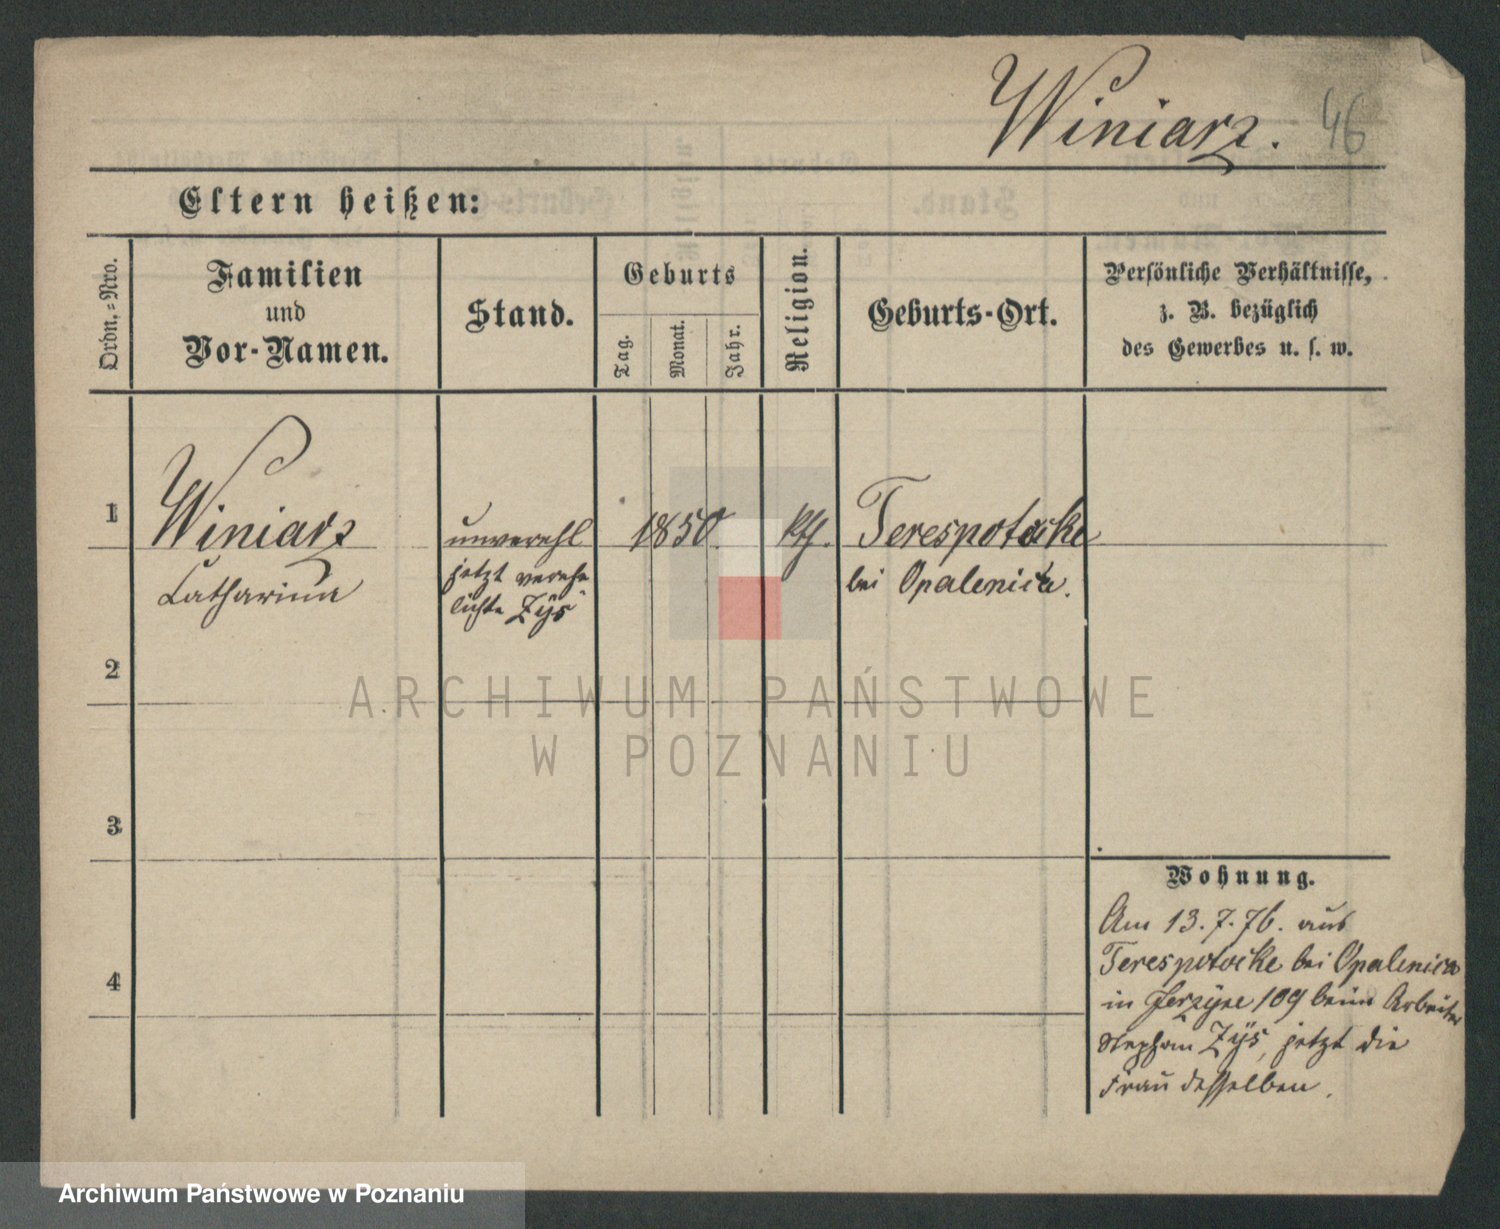 Winiarz. 46
Eltern heißen:
Ordn.-Nro.
Familien
und
Vor-Namen.
Stand.
Geburts
Tag.
Monat.
Jahr.
Religion.
Geburts-Ort.
Persönliche Verhältnisse,
z. B. bezüglich
des Gewerbes u. s. w.
1
Winiarz
Catharina
unverehl
jetzt verehe
lichte Zÿs
1850.
kth.
Terespotocke
bei Opalenica.
2
3
4
Wohnung.
Am 13.7.76. aus
Terespotocke bei Opalenica
in Jerzÿce 109 beim Arbeiter
Stephan Zÿs, jetzt die
Frau desselben.
ARCHIWUM PAŃSTWOWE
W POZNANIU
Archiwum Państwowe w Poznaniu